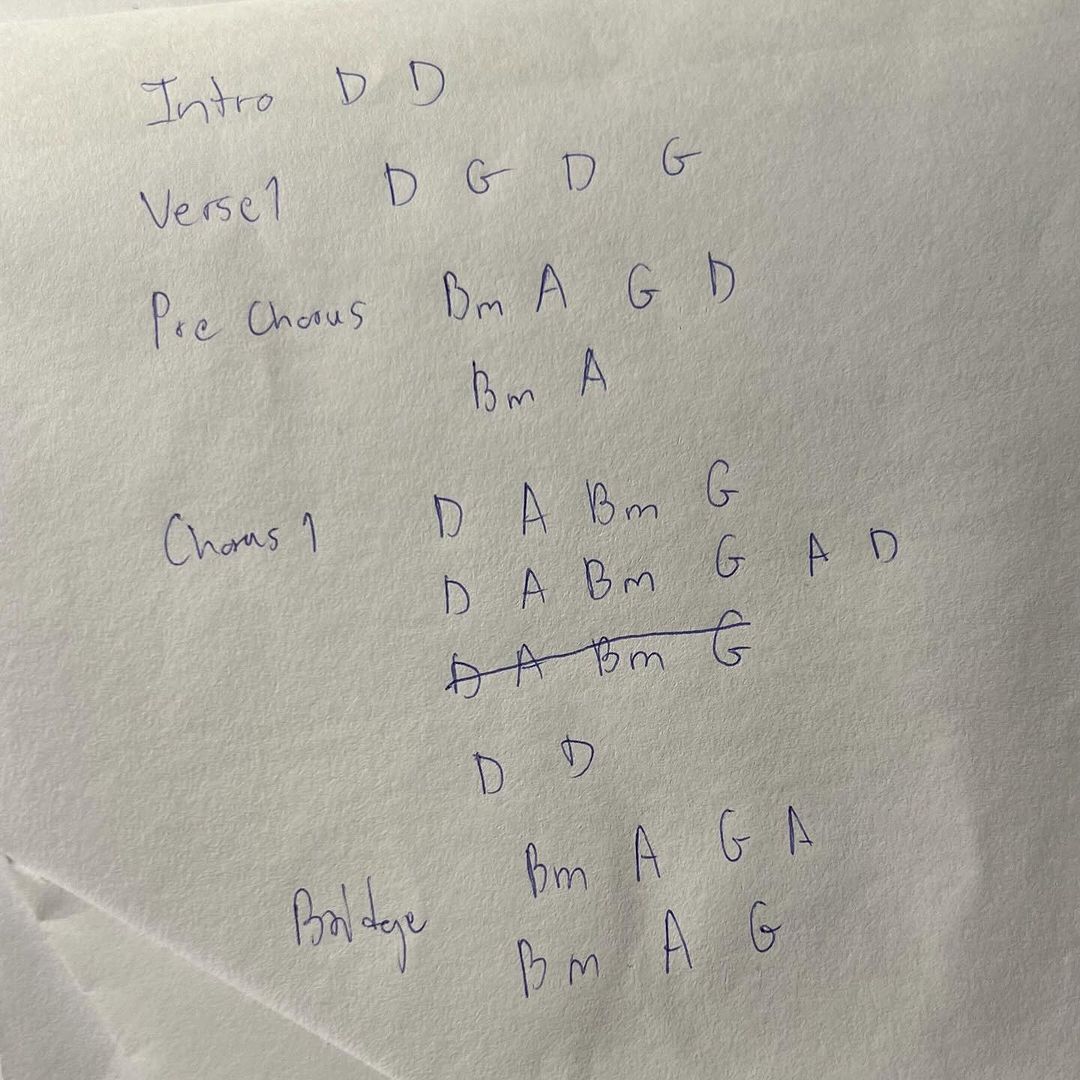 Intro D D
Verse1 D G D G
Pre Chorus Bm A G D
Bm A
Chorus 1 D A Bm G
D A Bm G A D
D A Bm G
D D
Bm A G A
Bridge
Bm A G